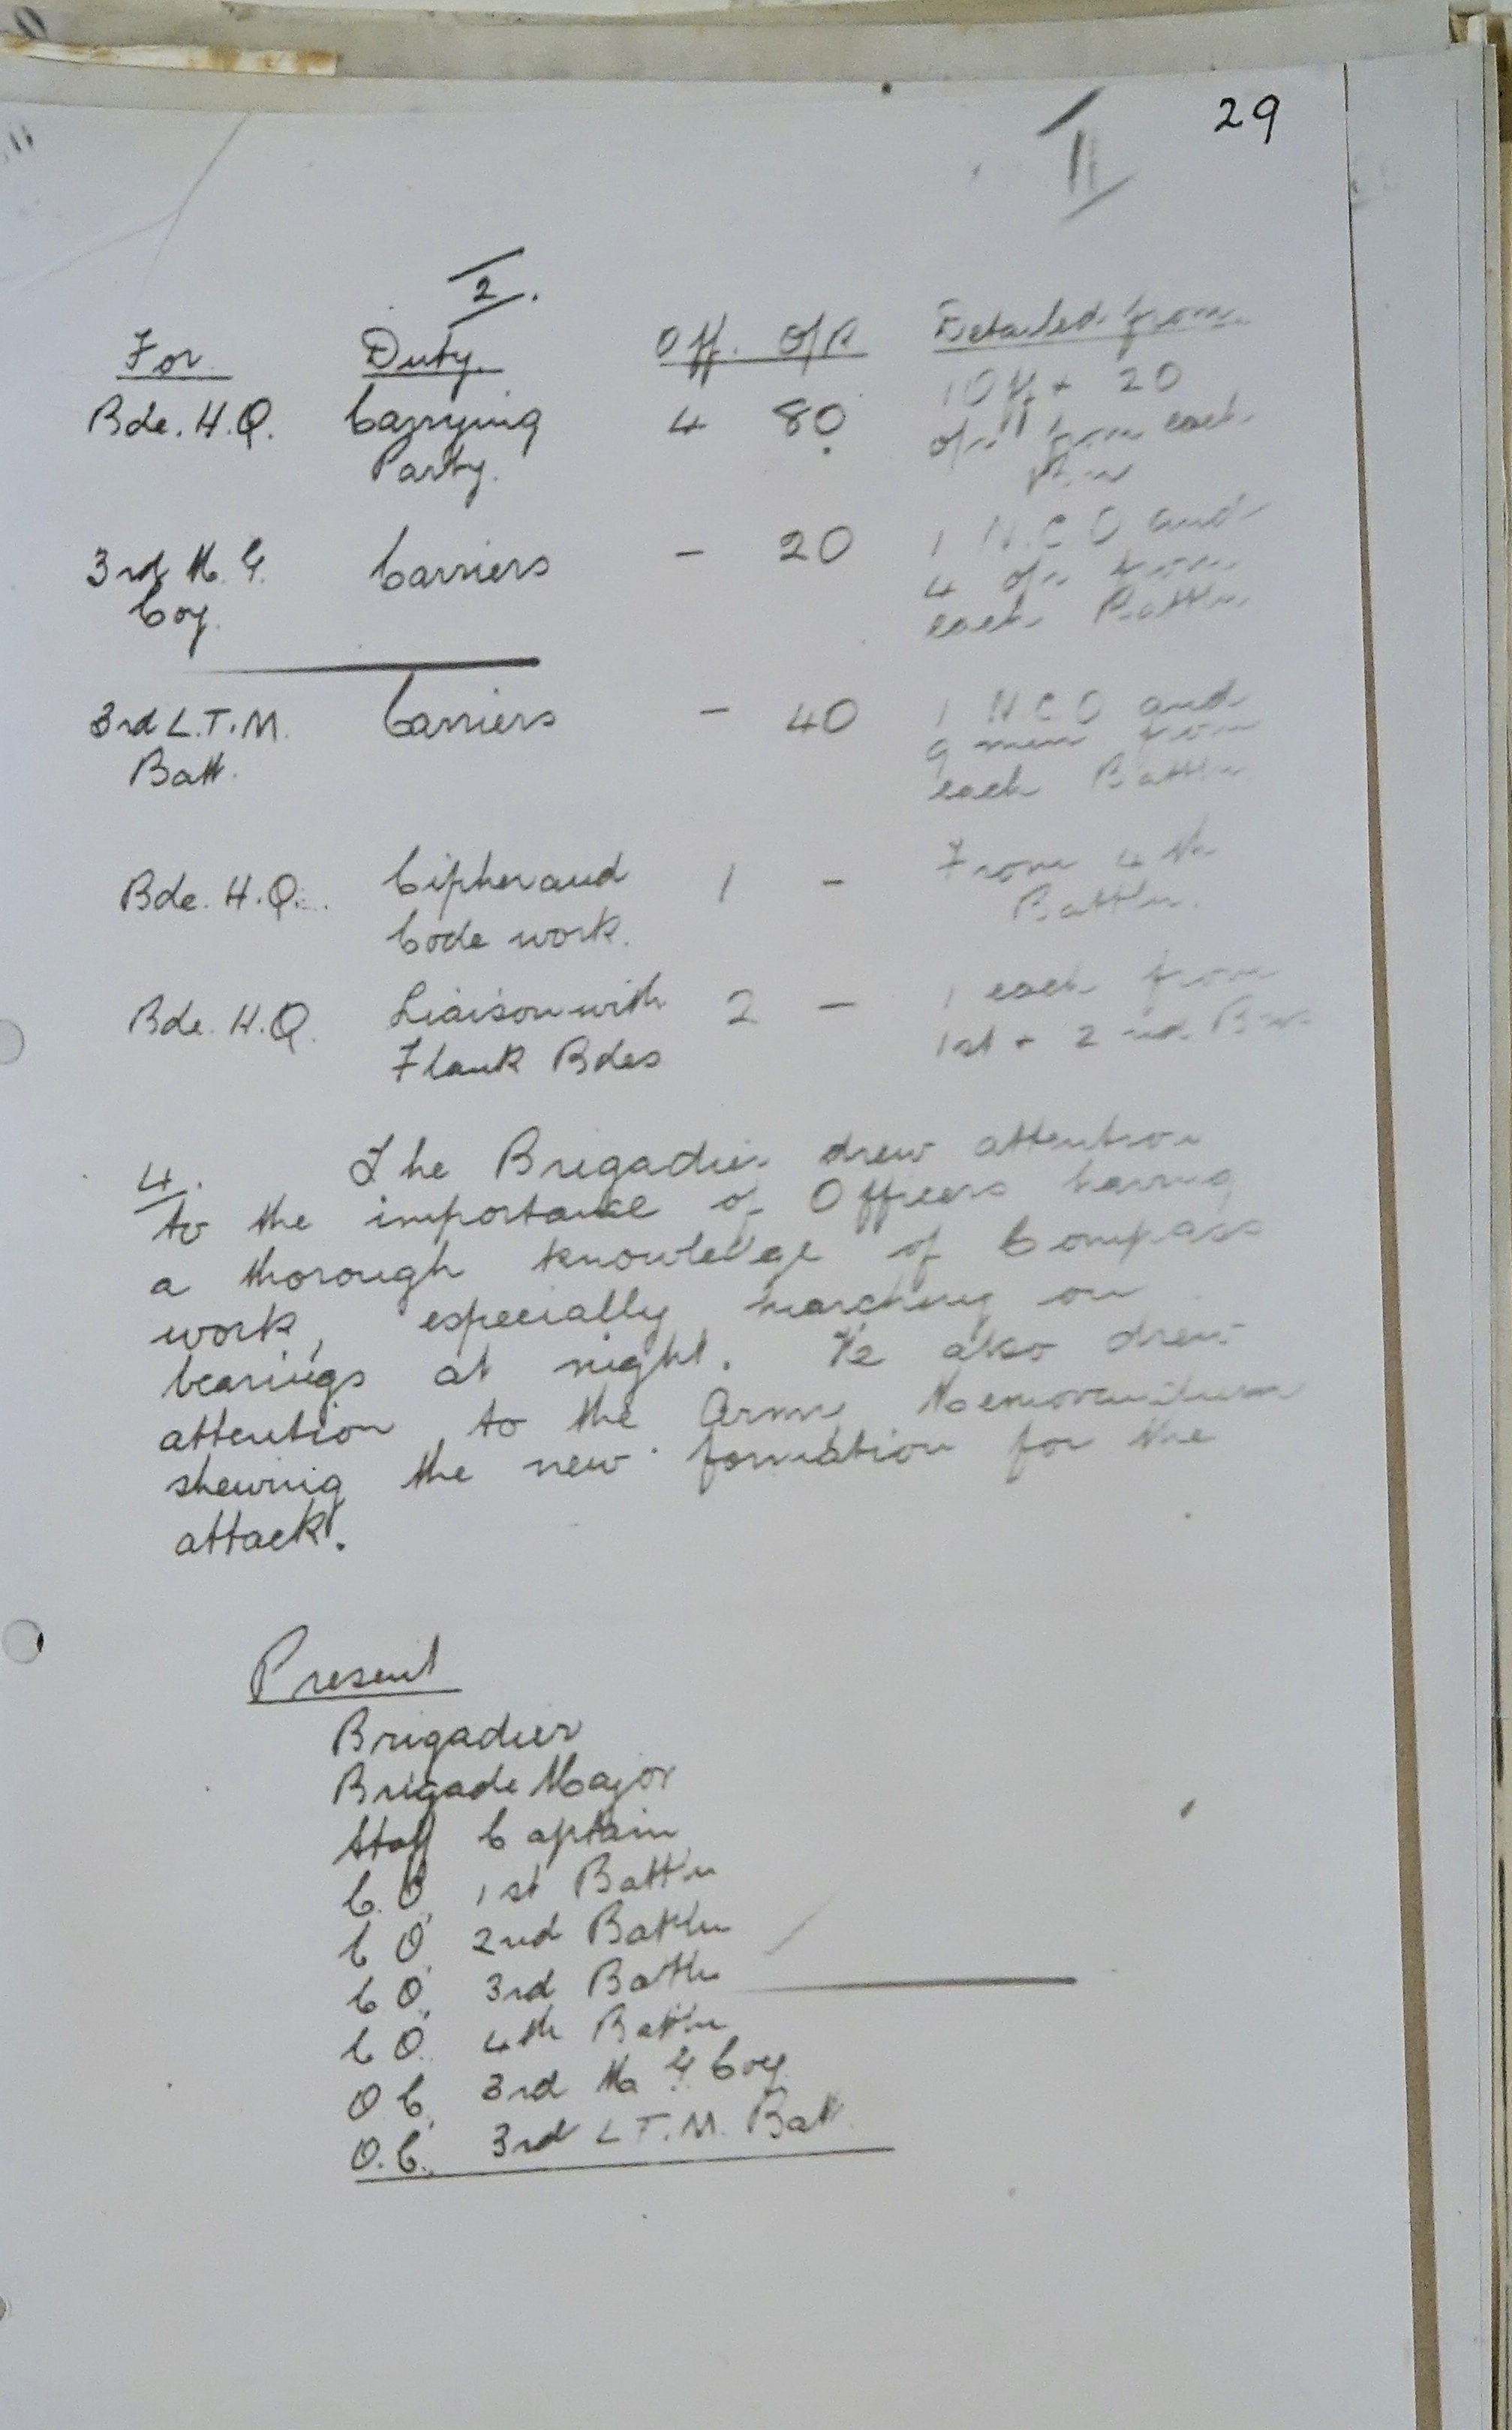 29
11
2.
For Duty. Off. O/R Detailed from
Bde. H.Q. Carrying 4 80 1 Off + 20
Party. o/rs from each
Bn
3rd M.G. Carriers - 20 1 N.C.O and
Coy. 4 o/rs from
each Battln
3rd L.T.M. Carriers - 40 1 N.C.O and
Batt. 9 men from
each Battln
Bde. H.Q. Cipher and 1 - From 4th
Code work. Battln.
Bde. H.Q. Liaison with 2 - 1 each from
Flank Bdes 1st + 2nd Bns.
4. The Brigadier drew attention
to the importance of Officers having
a thorough knowledge of Compass
work, especially marching on
bearings at night. He also drew
attention to the Army Memorandum
shewing the new formation for the
attack.
Present
Brigadier
Brigade Major
Staff Captain
C.O. 1st Battln
C.O. 2nd Battln
C.O. 3rd Battln
C.O. 4th Battln
O.C. 3rd M.G. Coy
O.C. 3rd L.T.M. Batt.